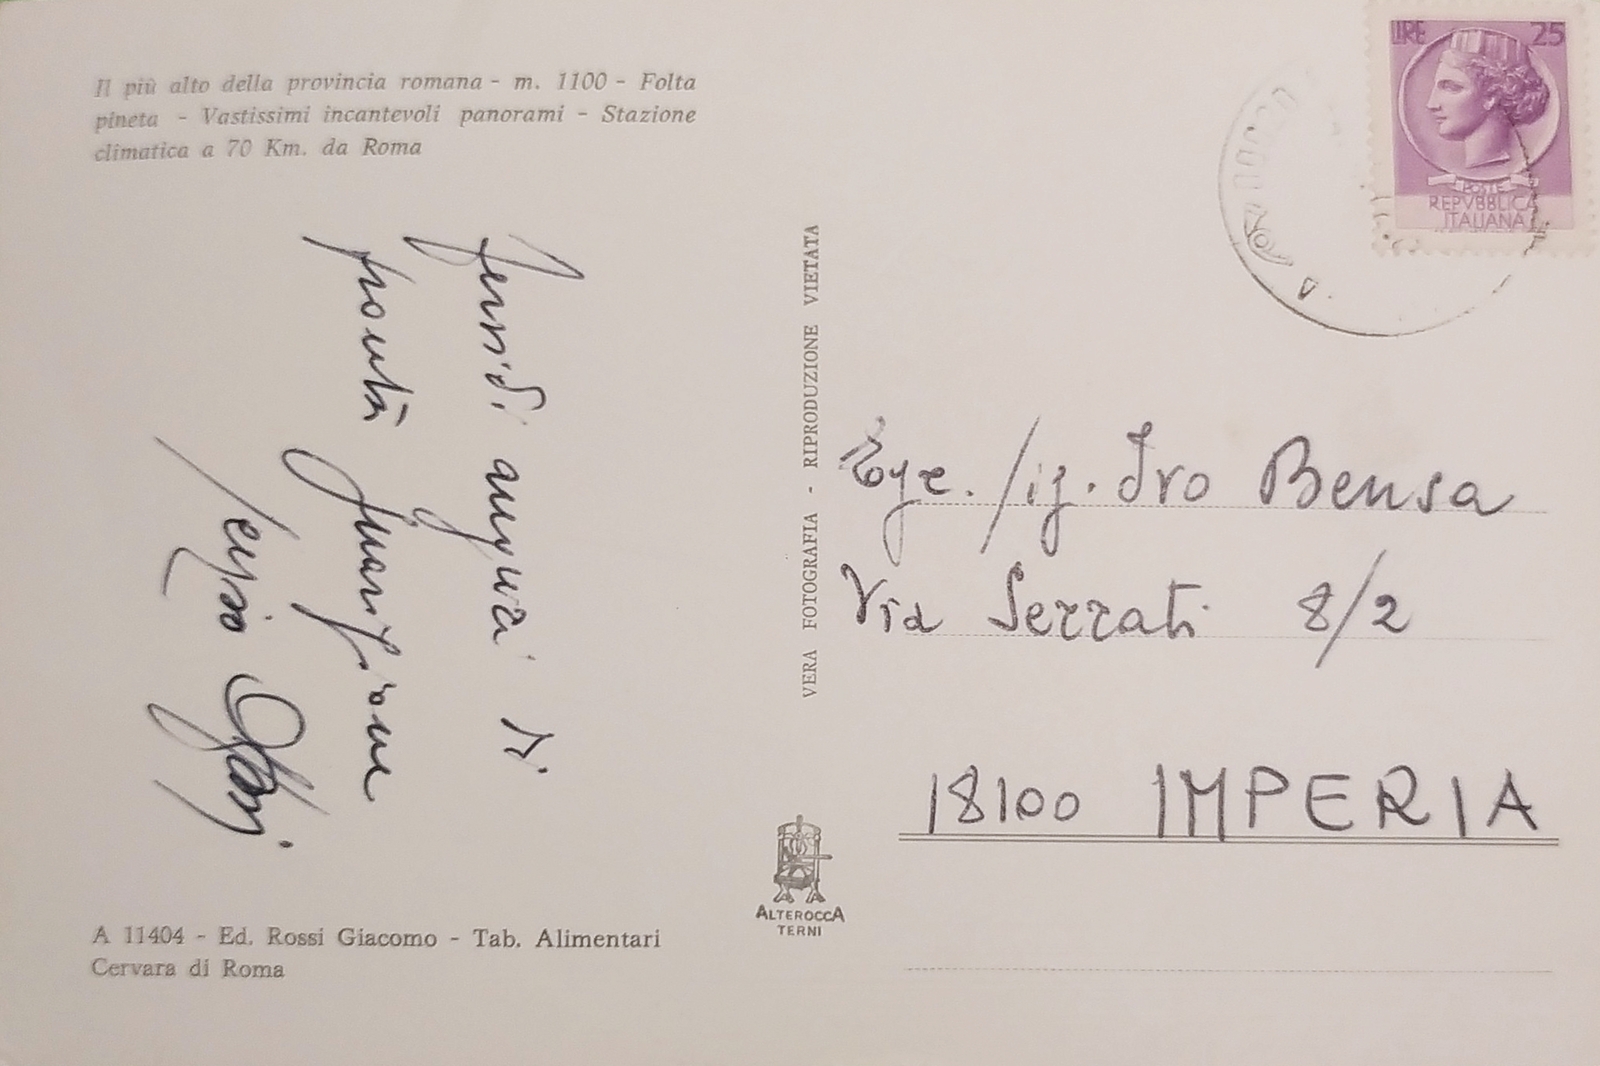 Il più alto della provincia romana - m. 1100 - Folta
pineta - Vastissimi incantevoli panorami - Stazione
climatica a 70 Km. da Roma
auguri di
pronta guarigione
VERA FOTOGRAFIA - RIPRODUZIONE VIETATA
LIRE 25
POSTE
REPVBBLICA
ITALIANA
Sig. Ivo Bensa
Via Serrati 8/2
18100 IMPERIA
ALTEROCCA
TERNI
A 11404 - Ed. Rossi Giacomo - Tab. Alimentari
Cervara di Roma